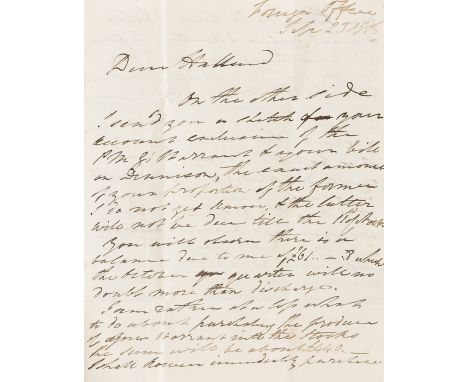 Foreign Office
Sept 23 18
Dear Halland
On the other side
I send you a sketch for your
account exclusive of the
P.M.G. Warrant & your bill
on Dennison, the exact amount
of your proportion of the former
I do not yet know, & the latter
will not be due till the 11th
You will observe there is a
balance due to me of £261.. - .8 which
the October quarter will no
doubt more than discharge.
I am rather at a loss what
to do about purchasing the produce
of your Warrant into the Stocks
the sum will be about £440. -
I shall however immediately purchase